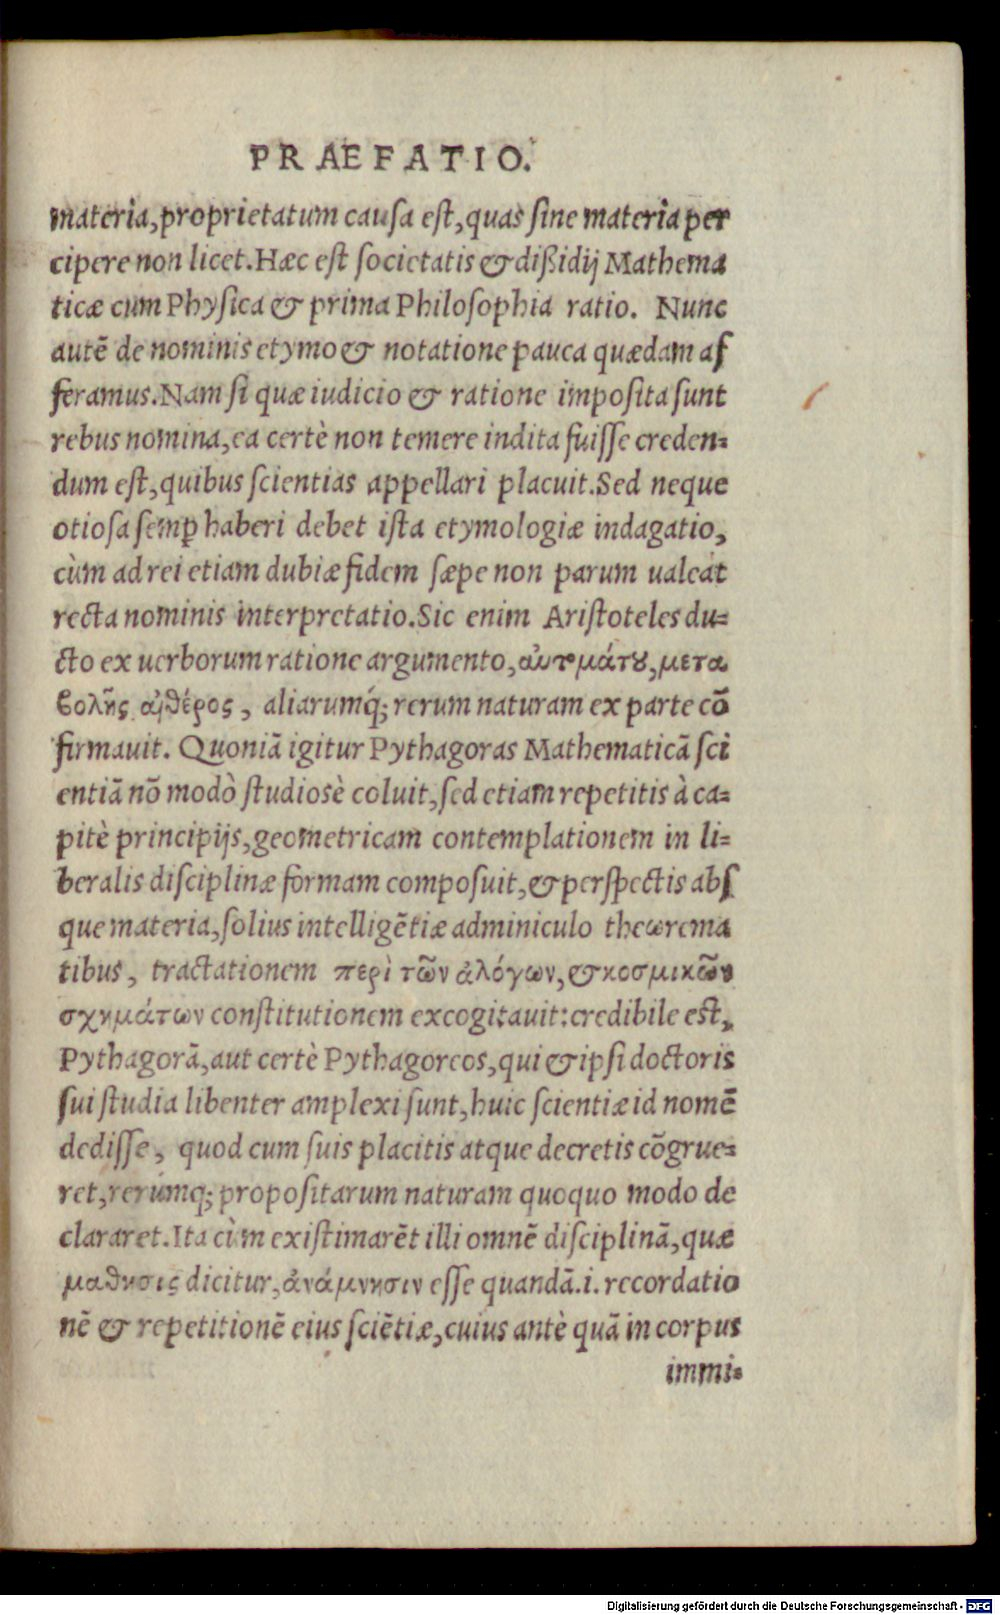 PRAEFATIO.
materia, proprietatum causa est, quas sine materia per
cipere non licet. Hæc est societatis & dißidij Mathema
ticæ cum Physica & prima Philosophia ratio. Nunc
autẽ de nominis etymo & notatione pauca quædam af
feramus. Nam si quæ iudicio & ratione imposita sunt
rebus nomina, ea certè non temere indita fuisse creden=
dum est, quibus scientias appellari placuit. Sed neque
otiosa semꝑ haberi debet ista etymologiæ indagatio,
cùm ad rei etiam dubiæ fidem sæpe non parum ualeat
recta nominis interpretatio. Sic enim Aristoteles du=
cto ex uerborum ratione argumento, αὐτομάτȣ, μετα
βολῆς αἰθέρος, aliarumq́; rerum naturam ex parte cõ
firmauit. Quoniã igitur Pythagoras Mathematicã sci
entiã nõ modò studiosè coluit, sed etiam repetitis à ca=
pitè principijs, geometricam contemplationem in li=
beralis disciplinæ formam composuit, & perspectis abs
que materia, solius intelligẽtiæ adminiculo theωrema
tibus, tractationem περὶ τῶν ἀλόγων, & κοσμικῶν
σχημάτων constitutionem excogitauit: credibile est,
Pythagorã, aut certè Pythagoreos, qui & ipsi doctoris
sui studia libenter amplexi sunt, huic scientiæ id nomẽ
dedisse, quod cum suis placitis atque decretis cõgrue=
ret, rerúmq; propositarum naturam quoquo modo de
clararet. Ita cùm existimarẽt illi omnẽ disciplinã, quæ
μαθησις dicitur, ἀνάμνησιν esse quandã .i. recordatio
nẽ & repetitionẽ eius sciẽtiæ, cuius antè quã in corpus
immi=
Digitalisierung gefördert durch die Deutsche Forschungsgemeinschaft - DFG